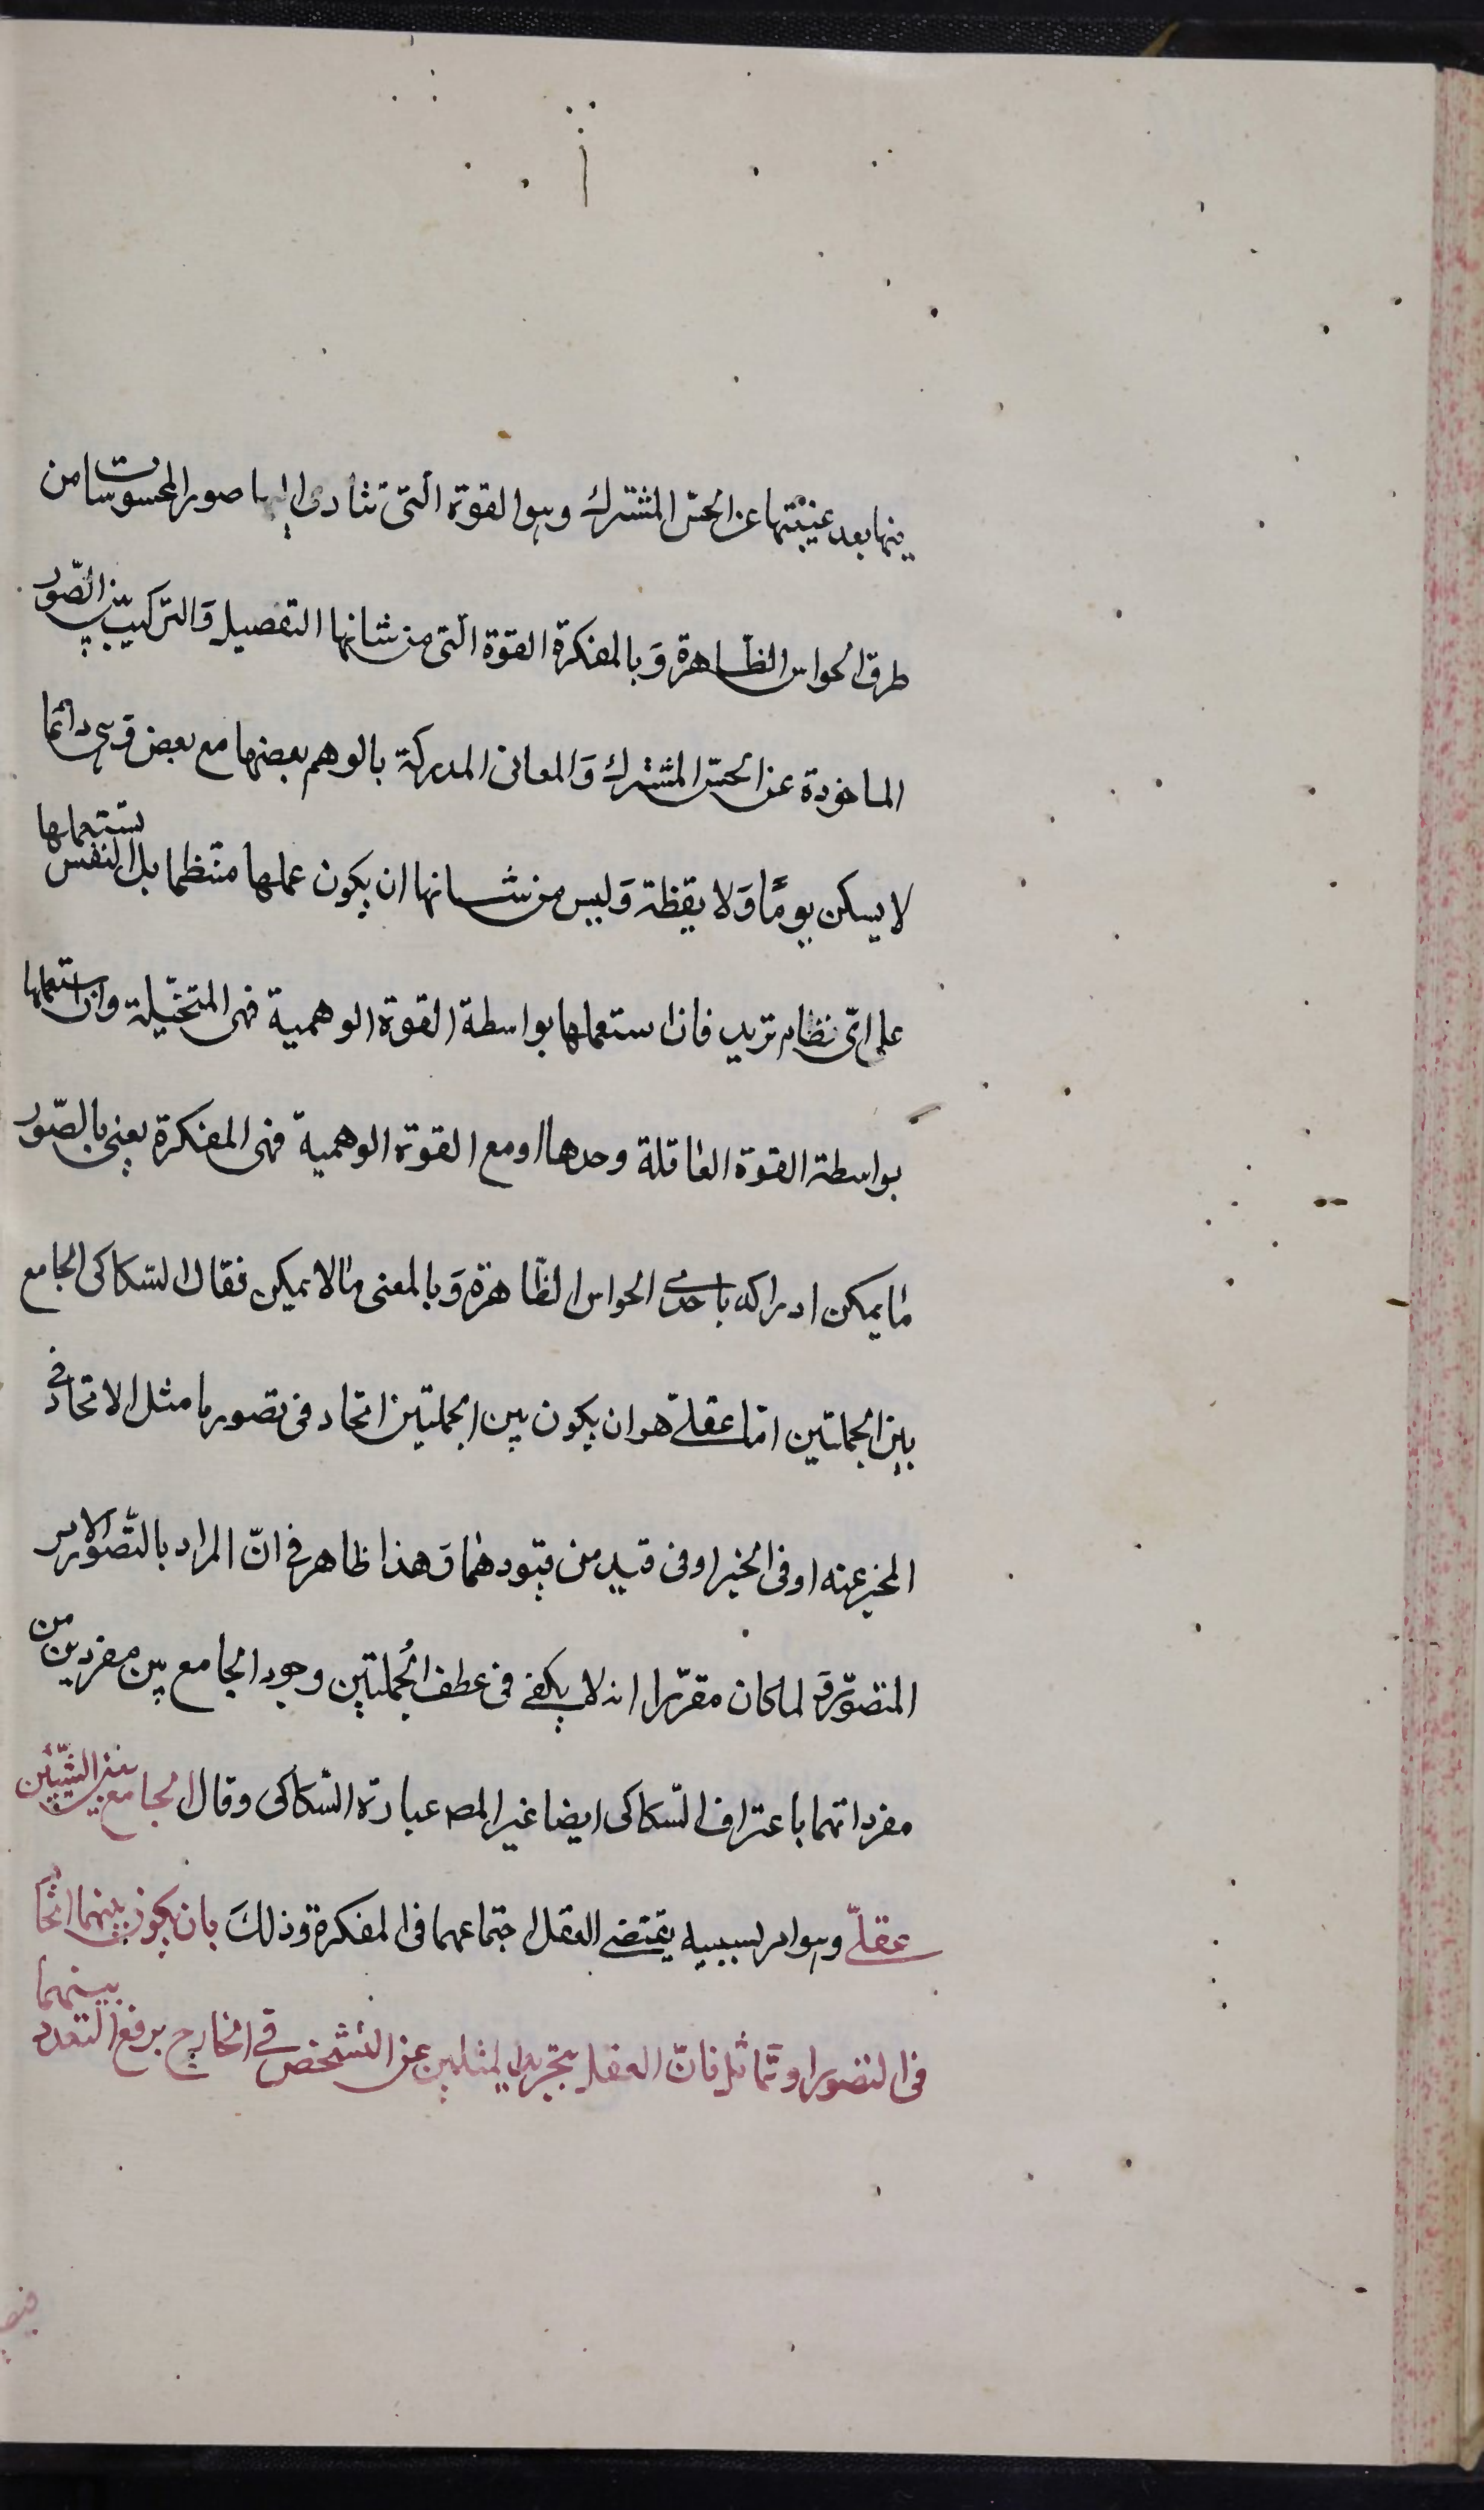 فيها بعد غيبتها عن الحسّ المشترك وهو القوة الّتى تتأدى إليها صور المحسوسات من
طرق الحواس الظاهرة وَبالمفكرة القوّة الّتى من شانها التفصيل وَالتركيب بين الصّور
الماخوذة عن الحسّ المشترك وَالمعانى المدركة بالوهم بعضها مع بعض وهى دائما
لا يسكن يومًا وَلا يقظة وَليس من شانها ان يكون عملها منتظما بل النفس يستعملها
على اىّ نظام تريد فان استعملها بواسطة القوة الوهمية فهى المتخيّلة وان استعملها
بواسطة القوة العاقلة وحدها او مع القوة الوهمية فهى المفكرة يعنى بالصّور
ما يمكن ادراكه باحدى الحواس الظّاهرة وَبالمعنى ما لا يمكن فقال السّكاكى الجامع
بين الجملتين امّا عقلىّ هو ان يكون بين الجملتين اتحاد فى تصور ما مثل الاتحاد فى
المخبر عنه او فى الخبر او فى قيد من قيودهما وَهذا ظاهر فى انّ المراد بالتّصور الامر
المتصوّر وَلما كان مقرّرا انه لا يكفى فى عطف الجُملتين وجود الجامع بين مفردين من
مفرداتهما باعتراف السّكاكى ايضا غير المصـ عبارة السّكاكى وقال الجامع بين الشّيئين
عقلىّ وهو امر بسببه يقتضى العقل اجتماعهما فى المفكرة وَذلكَ بان يكون بينهما اتّحاد
فى التصور او تَماثل فانّ العقل بتجريد المثلين عن التشخص فى الخارج يرفع التعدد بينهما